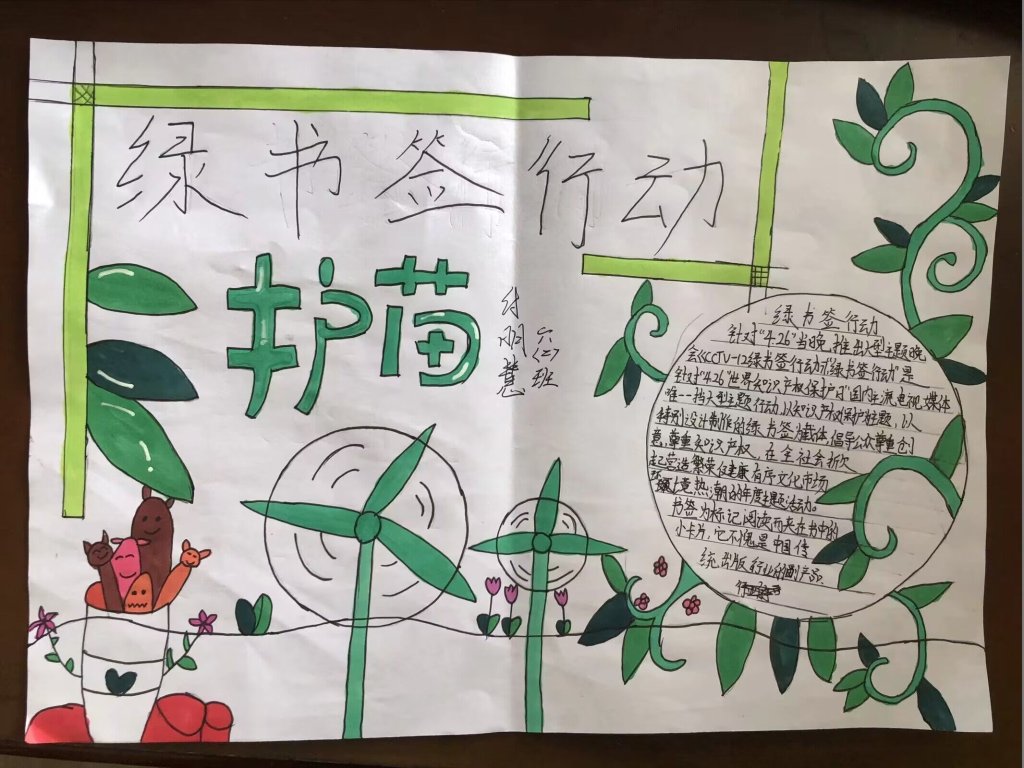 绿书签行动
护苗
付朋慧
六(二)班
绿书签行动
针对“4.26”当晚,推出大型主题晚
会《CCTV-12绿书签行动》“绿书签行动”是
针对“4.26”世界知识产权保护日”国内主流电视媒体
唯一一档大型主题行动,以知识产权保护主题,以
特别设计制作的绿书签为载体,倡导公众尊重创
意,尊重知识产权,在全社会掀
起营造繁荣健康有序文化市场
热潮的年度主题活动。
书签为标记阅读而夹在书中的
小卡片,它不愧是中国传
统出版行业的副产品